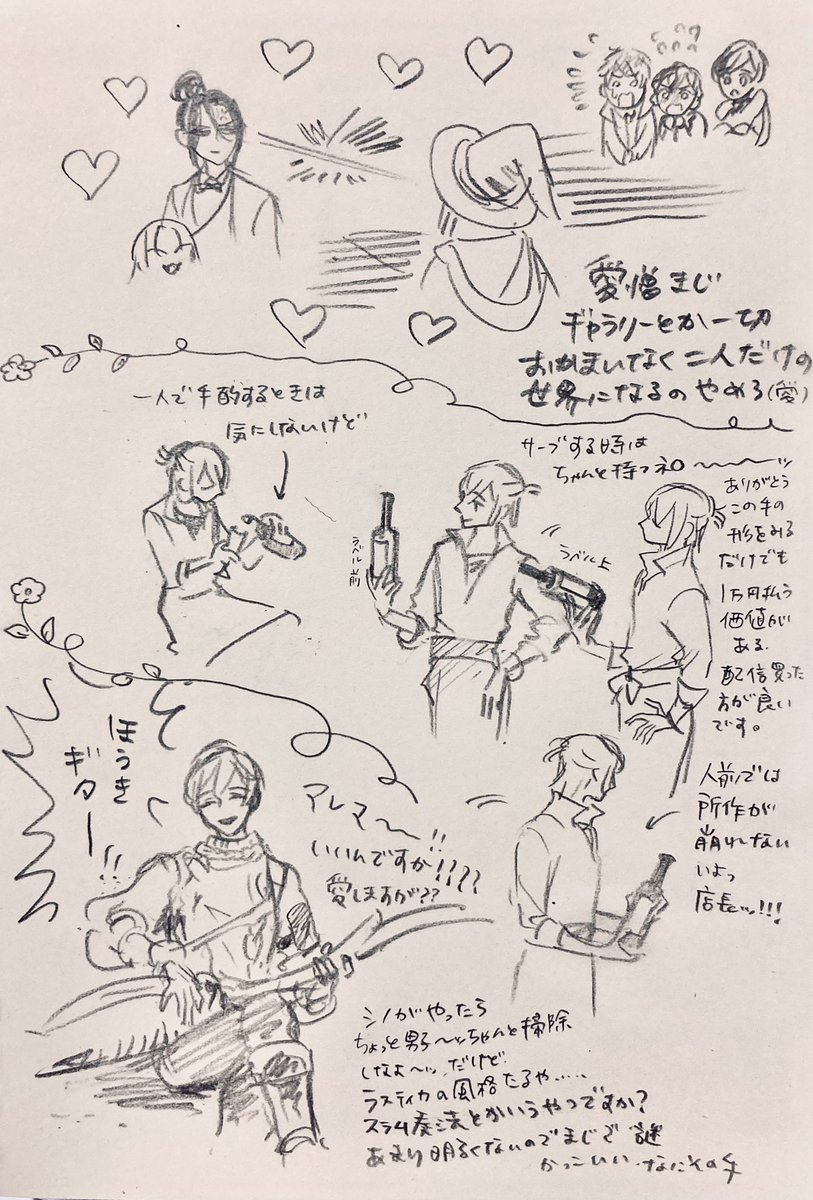 愛憎まじ
ギャラリーとか一切
おかまいなく二人だけの
世界になるのやめろ(愛)
一人で手酌するときは
気にしないけど
サーブする時は
ちゃんと持つネロ〜〜〜ッ
ラベル前
ラベル上
ありがとう
この手の
形をみる
だけでも
1万円払う
価値が
ある.
配信買った
方が良い
です。
人前では
所作が
崩れない
いよっ
店長ッ!!!
ほうき
ギター!!
アレマ〜〜!!
いいんですか!????
愛しますが??
シノがやったら
ちょっと男子〜ッちゃんと掃除
しなよ〜ッ.だけど.
ラスティカの風格たるや.....
スラム奏法とかいうやつですか?
あまり明るくないのでまじで謎
かっこいい.なにその手